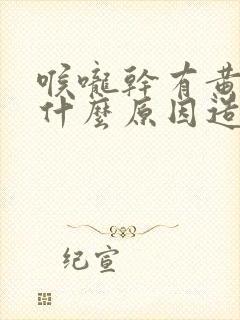 喉嚨幹有黃
什麼原因造
纪宣